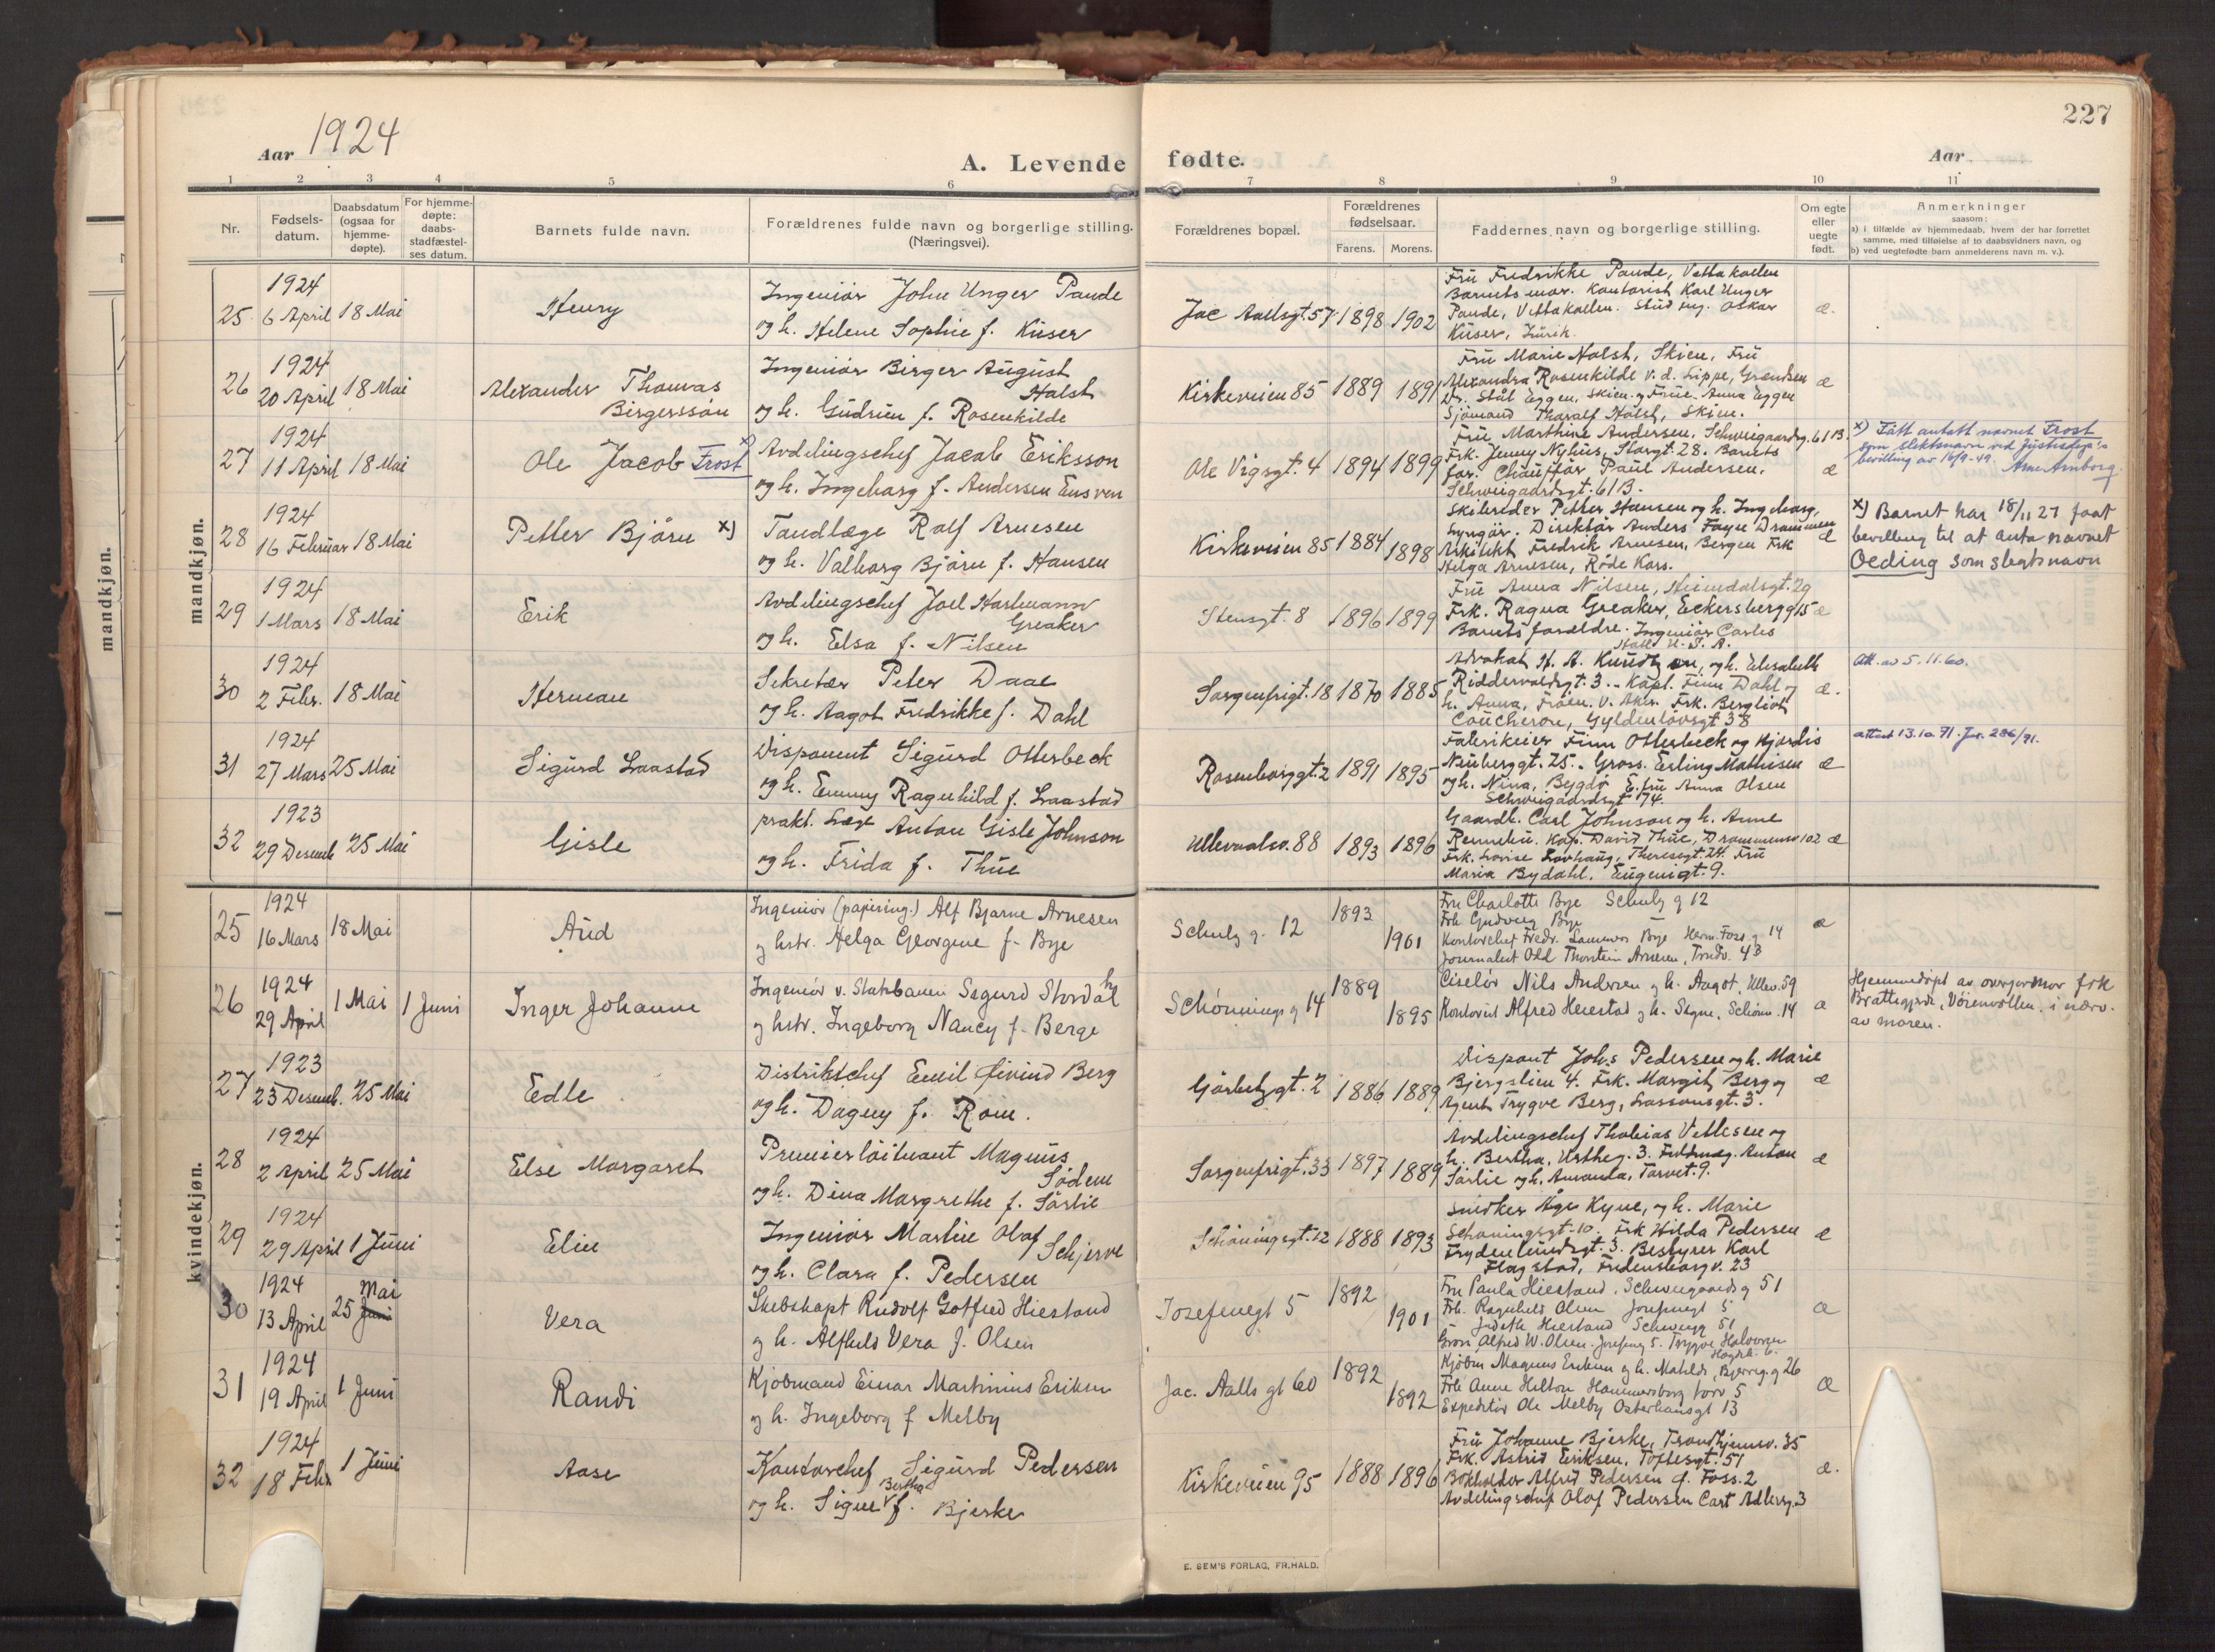 227
Aar 1924
A. Levende fødte.
Aar
1 2 3 4 5 6 7 8 9 10 11
Nr.
Fødsels-
datum.
Daabsdatum
(ogsaa for
hjemme-
døpte).
For hjemme-
døpte:
daabs-
stadfæstel-
ses datum.
Barnets fulde navn.
Forældrenes fulde navn og borgerlige stilling.
(Næringsvei).
Forældrenes bopæl.
Forældrenes
fødselsaar.
Farens. Morens.
Faddernes navn og borgerlige stilling.
Om egte
eller
uegte
født.
Anmerkninger
saasom:
a) i tilfælde av hjemmedaab, hvem der har forrettet
samme, med tilføielse af to daabsvidners navn, og
b) ved uegtefødte barn anmelderens navn m. v.).
mandkjøn.
mandkjøn.
1924
25 6 April 18 Mai
Henry
Ingeniør John Unger Paude
og h. Helene Sophie f. Küser
Jac Aallsgt. 57 1898 1902
Fru Fredrikke Paude, Vettakollen
Barnets mor. Kontorist Karl Unger
Paude, Vettakollen. Stud. ing. Oskar
Küser, Zürik.
æ.
1924
26 20 April 18 Mai
Alexander Thomas
Birgerssøn
Ingeniør Birger August
Holst
og h. Gudrun f. Rosenkilde
Kirkeveien 85 1889 1891
Fru Marie Holst, Skien, Fru
Alexandra Rosenkilde v. d. Lippe, Grændsen
Dr. Ståt Eggen, Skien og Frue Anna Eggen
Sjømand Thoralf Holst, Skien.
æ
1924
27 11 April 18 Mai
Ole Jacob Frost x)
Avdelingschef Jacob Eriksson
og h. Ingeborg f. Andersen Ensven
Ole Vigsgt. 4 1894 1899
Fru Marthine Andersen, Schweigaardsg. 61 B.
Frk. Jenny Nyhus, Storgt. 28. Barnets
far. Chauffør Paul Andersen,
Schweigaardsgt. 61 B.
æ
x) Fått antatt navnet Frost
som slektsnavn ved Justisdep's
bevilling av 16/9-49. Arne Arnborg
1924
28 16 Februar 18 Mai
Petter Bjørn x)
Tandlæge Rolf Arnesen
og h. Valborg Bjørn f. Hansen
Kirkeveien 85 1884 1898
Skibsreder Petter Hansen og h. Ingeborg,
Lyngør. Direktør Anders Faye Drammen
Arkitekt Fredrik Arnesen, Bergen Frk
Helga Arnesen, Røde Kors.
æ
x) Barnet har 18/11 27 faat
bevilling til at anta navnet
Oeding som slegtsnavn
1924
29 1 Mars 18 Mai
Erik
Avdelingschef Joel Hartmann
Greaker
og h. Elsa f. Nilsen
Stensgt. 8 1896 1899
Fru Anna Nilsen, Heimdalsgt. 29
Frk. Ragna Greaker, Eckersbergg 15
Barnets foreldre. Ingeniør Carlos
Holt U. S. A.
æ
1924
30 2 Febr. 18 Mai
Herman
Sekretær Peter Daae
og h. Aagot Fredrikke f. Dahl
Sorgenfrigt. 18 1870 1885
Advokat H. A. Knudtzon, og h. Elisabeth
Riddervoldsgt. 3. Kapt. Finn Dahl og
h. Anna, Frøen. V. Aker. Frk. Bergliot
Coucheron, Gyldenløvsgt 38
æ.
Att. av 5.11.60.
1924
31 27 Mars 25 Mai
Sigurd Laastad
Disponent Sigurd Otterbeck
og h. Emmy Ragnhild f. Laastad
Rosenborggt. 2 1891 1895
Fabrikeier Finn Otterbeck og Hjørdis
Neuberggt. 25. Gross. Erling Mathisen
og h. Nina, Bygdø E. fru Anna Olsen
Schweigaardsgt 74.
æ
attest 13.10.71. Jnr. 286/71.
1923
32 29 Desemb 25 Mai
Gisle
prakt. Læge Anton Gisle Johnson
og h. Frida f. Thue
Ullevaalsv. 88 1893 1896
Gaardb. Carl Johnson og h. Anne
Kap. David Thue, Drammensv 102
Frk. Lovise Lovhaug, Theresegt. 24. Fru
Maria Bydahl. Eugenigt. 9.
æ
kvindekjøn.
1924
25 16 Mars 18 Mai
Aud
Ingeniør (papiring.) Alf Bjarne Arnesen
og hstr. Helga Georgine f. Bye
Schulz g. 12 1893 1901
Fru Charlotte Bye Schulz g 12
Frk Gudveig Bye –
Kontorchef Fredr. Lammers Bye Herm. Foss g 14
Journalist Odd Thorstein Arnesen, Trudv. 43
æ
1924
26 29 April 1 Mai 1 Juni
Inger Johanne
Ingeniør v. Statsbanen Sigurd Stordahl
og hstr. Ingeborg Nancy f. Berge
Schønnings g 14 1889 1895
Ciselør Nils Andersen og h. Aagot, Ullev. 59
Kontorist Alfred Heiestad og h. Signe, Schønn. 14
æ
Hjemmedøpt av overjordmor frk
Brattegjerde, Vøienvollen, i nærv.
av moren.
1923
27 23 Desemb. 25 Mai
Edle
Distriktschef Emil Eivind Berg
og h. Dagny f. Rom.
Gørbitzgt. 2 1886 1889
Dispont Johs Pedersen og h. Marie
Bjergslien 4. Frk. Margit Berg og
Agent Trygve Berg, Lassonsgt. 3.
æ
1924
28 2 April 25 Mai
Else Margaret
Premierløitnant Magnus
Södem
og h. Dina Margrethe f. Sørlie
Sorgenfrigt. 33 1897 1889
Avdelingschef Thobias Vettesen og
h. Bertha, Ustheg. 3. Fuldmæg. Anton
Sørlie og h. Amanda, Torvet. 9.
æ
1924
29 29 April 1 Juni
Elin
Ingeniør Martin Olaf
Schjerve
og h. Clara f. Pedersen
Schøningsgt. 12 1888 1893
Snedker Åge Kyne, og h. Marie
Schøningsgt. 10. Frk Hilda Pedersen
Frydenlundsgt. 3. Bestyrer Karl
Flagstad, Fredensborgv. 23
æ
1924
Mai
30 13 April 25 Juni
Vera
Skibskapt Rudolf Gotfred Hiestand
og h. Alfhild Vera f. Olsen
Josefinegt 5 1892 1901
Fru Paula Hiestand, Schweigaards g 51
Frk. Ragnhild Olsen Josefinegt 5
" Judith Hiestand Schweigg 51
Gross. Alfred W. Olsen. Josefineg 5. Trygve Halvorsen
æ
1924
31 19 April 1 Juni
Randi
Kjøbmand Einar Martinius Eriksen
og h. Ingeborg f Melby
Jac. Aalls gt 60 1892 1892
Kjøbm Magnus Eriksen og h. Mahlda, Bjerreg. g 26
Frk Anne Hilton Hammersborg torv 5
Expeditør Ole Melby Osterhausgt 13
æ
1924
32 18 Febr 1 Juni
Aase
Kontorchef Sigurd Pedersen
Bertha
og h. Signe v f. Bjerke
Kirkeveien 95 1888 1896
Fru Johanne Bjerke, Trondhjemsv. 35
Frk. Astrid Eriksen, Toftesgt. 51
Bokholder Alfrid Pedersen q. Foss. 2
Avdelingschef Olaf Pedersen Cort Adlersg. 3
æ.
E. SEM'S FORLAG, FR.HALD.